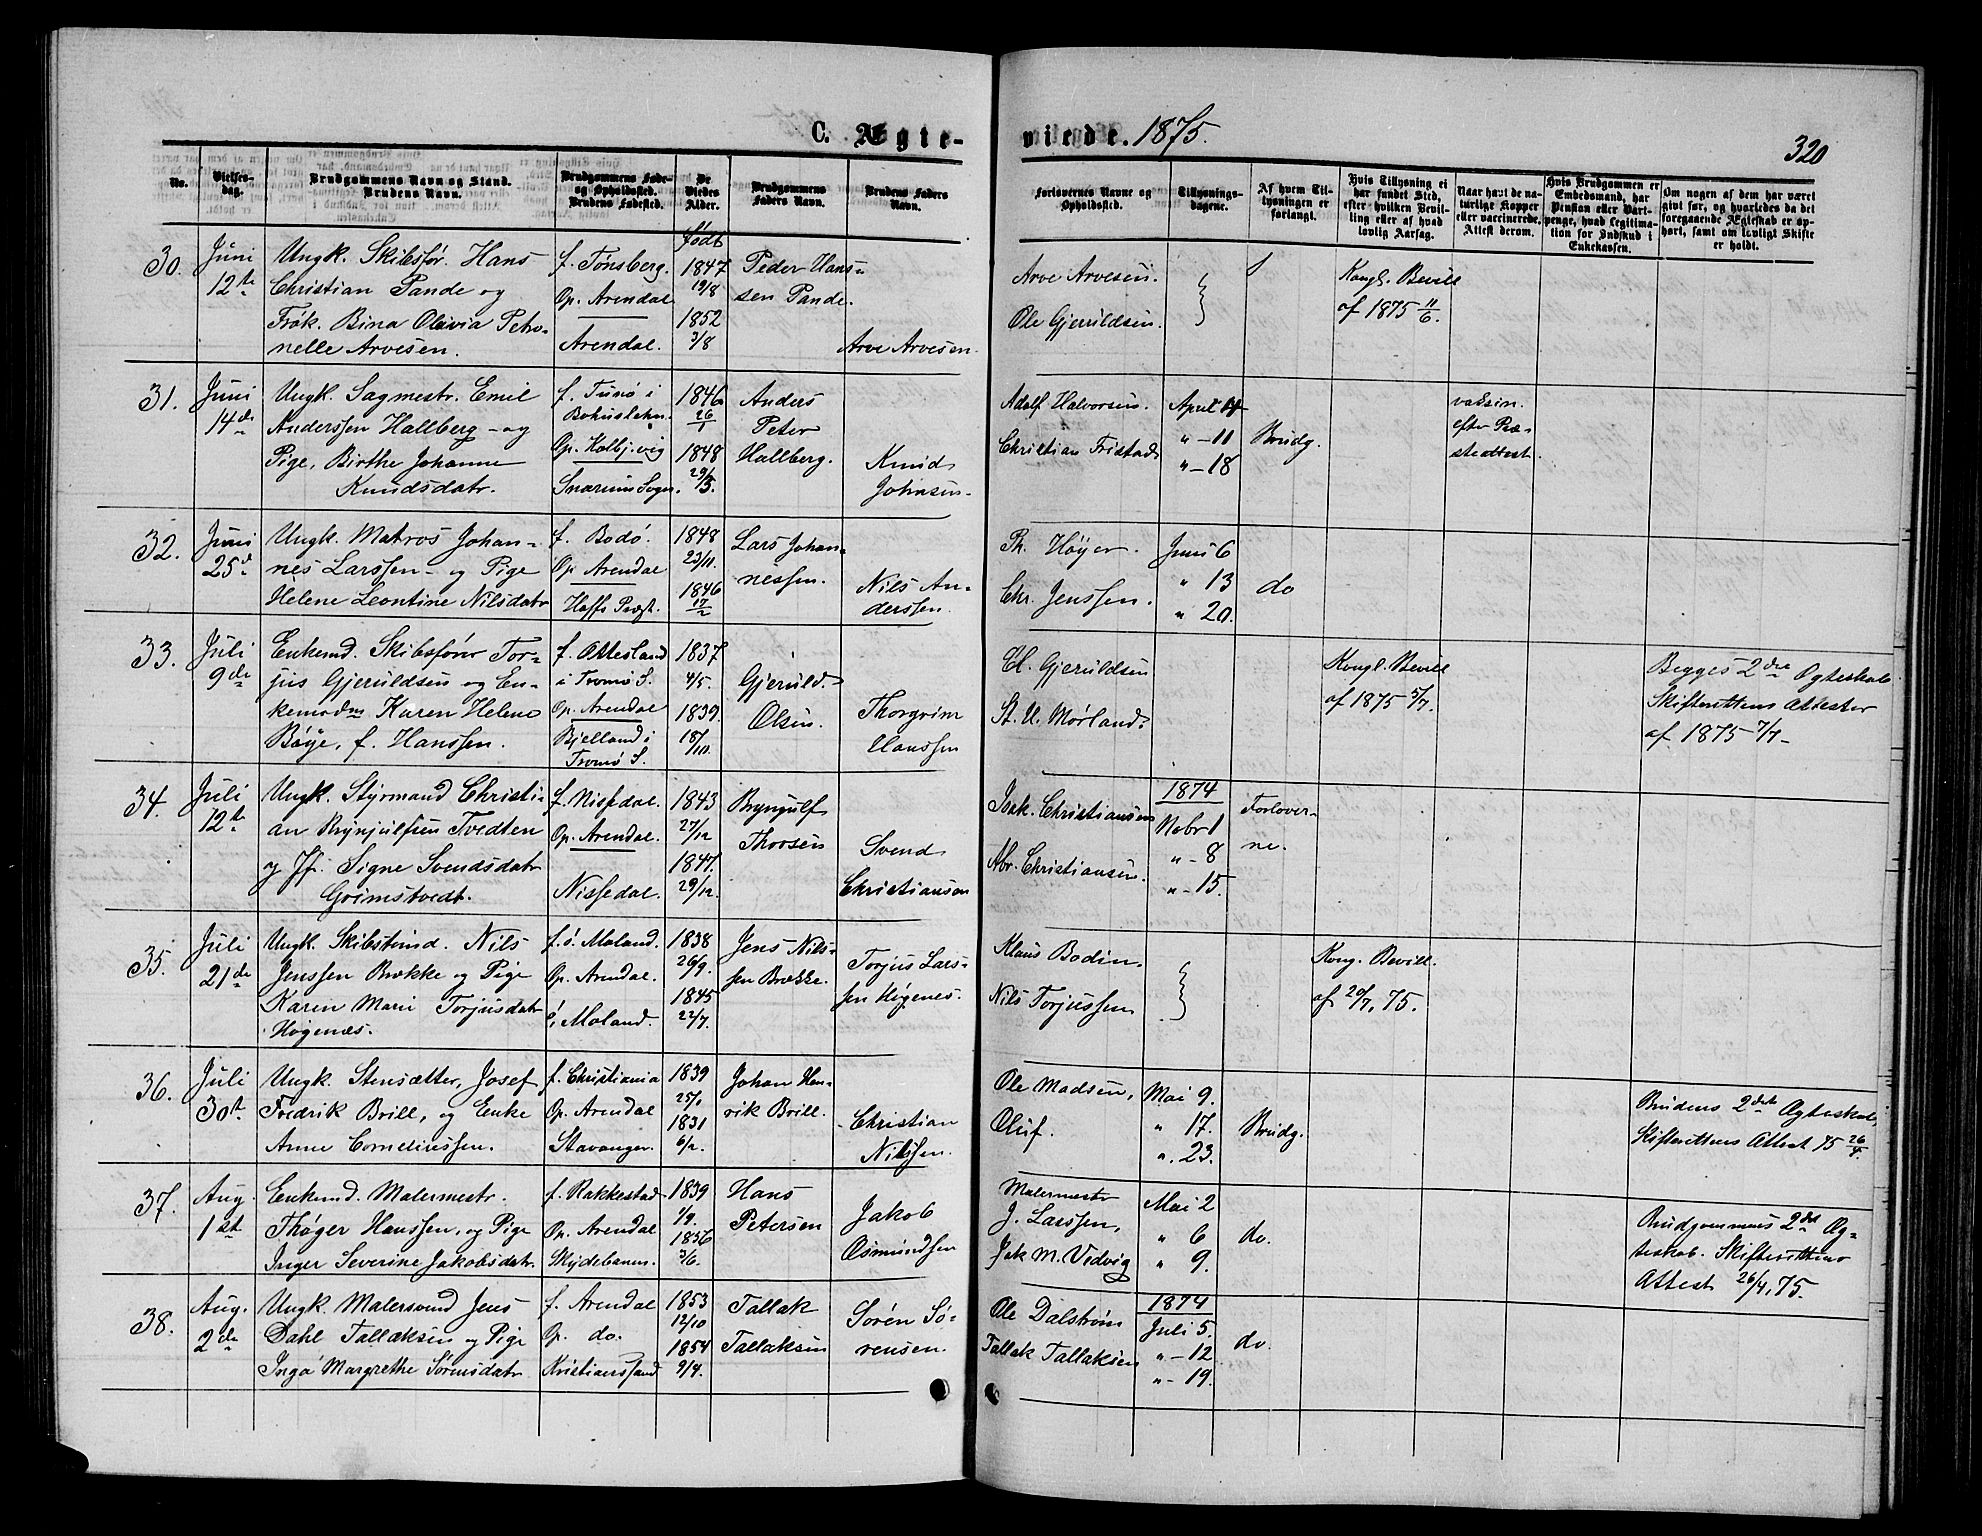 C. Ægte-
viede. 1875.
320
No.
Vielses-
dag.
Brudgommens Navn og Stand.
Brudens Navn.
Brudgommens Føde-
og Opholdssted.
Brudens Fødested.
De
Viedes
Alder.
Brudgommens
Faders Navn.
Brudens Faders
Navn.
Forlovernes Navne og
Opholdssted.
Tillysnings-
dagene.
Af hvem Til-
lysningen er
forlangt.
Hvis Tillysning ei
har fundet Sted,
efter hvilken Bevil-
ling eller af hvad
lovlig Aarsag.
Naar havt de na-
turlige Kopper
eller vaccinerede.
Attest derom.
Hvis Brudgommen er
Embedsmand, har
Pension eller Vart-
penge, hvad Legitima-
tion for Indskud i
Enkekassen.
Om nogen af dem har været
givt før, og hvorledes da det
foregaaende Ægteskab er op-
hørt, samt om lovligt Skifte
er holdt.
30.
Juni
12te
Ungk. Skibsfør. Hans
Christian Pande og
Frøk. Bina Olavia Petro-
nelle Arvesen.
f. Tønsberg.
Op. Arendal.
Arendal.
født
1847
19/8
1852
3/8
Peder Han-
sen Pande.
Arve Arvesen.
Arve Arvesen.
Ole Gjeruldsen.
Kongl. Bevill
af 1875 11/6.
31.
Juni
14de
Ungk. Sagmestr. Emil
Anderssen Hallberg - og
Pige, Birthe Johanne
Knudsdatr.
f. Tunø i
Bohuslehn.
Op. Kolbj.vig
Snarum Sogn.
1846
26/1
1848
29/3.
Anders
Peter
Hallberg.
Knud
Johnsen.
Adolf Halvorsen.
Christian Fristad
April 4
" - 11
" - 18
Brudg.
vaksin.
efter Præ-
steattest.
32.
Juni
25de
Ungk. Matros Johan-
nes Larssen - og Pige
Helene Leontine Nilsdatr
f. Bodø.
Op. Arendal
Haffs Prgt.
1848
23/11.
1846
17/2
Lars Johan-
nessen.
Nils An-
derssen.
Th. Høyer.
Chr. Jenssen.
Juni 6
" 13
" 20.
do
33.
Juli
9de
Enkemd. Skibsfører Tor-
jus Gjeruldsen og En-
kemadm Karen Helene
Bøye, f. Hanssen.
f. Alvesland
i Tromø S.
Op. Arendal
Bjelland i
Tromø S.
1837
4/5.
1839.
18/10.
Gjeruld
Olsen.
Thorgrim
Hanssen
El. Gjeruldsen
St. U. Mørland.
Kongl. Bevill
af 1875 5/7.
Begges 2det Ægteskab
Skifterettens Attester
af 1875 7/7-
34.
Juli
12te
Ungk. Styrmand Christi-
an Brynjulfsen Tvedten
og Jfr. Signe Svendsdatr
Grimstvedt.
f. Nissedal.
Op. Arendal.
Nissedal.
1843
27/12
1847.
29/12.
Bryngulf
Thorsen
Svend
Christiansen
Isak. Christiansen
Abr. Christiansen.
1874
Nobr 1
" - 8
" - 15.
Forlover-
ne.
35.
Juli
21de
Ungk. Skibstmd. Nils
Jenssen Brekke og Pige
Karen Marie Torjusdatr
Høgenæs.
f. ø. Moland.
Op. Arendal.
ø. Moland.
1838
26/9.
1845
22/7.
Jens Nils-
sen Brekke.
Torjus Lars-
sen Høgenes.
Klaus Bodin.
Nils Torjussen
Kong. Bevill.
af 20/7, 75.
36.
Juli
30te
Ungk. Stensætter, Josef
Fredrik Brill, og Enke
Anne Corneliussen.
f. Christiania
Op. Arendal
Stavanger.
1839
25/1
1831
6/2.
Johan Hen-
rik Brill.
Christian
Nilssen.
Ole Madsen,
Oluf.
Mai 9.
" 17.
" 23.
Brudg.
Brudens 2det Ægteskab,
Skifterettens Attest 75 26/4.
37.
Aug.
1ste
Enkemd. Malermestr.
Thøger Hanssen, og Pige
Inger Severine Jakobsdatr.
f. Rakkestad
Op. Arendal
Skydebanen.
1839
1/9.
1836
3/6.
Hans
Petersen
Jakob
Osmundsen
Malermestr
J. Larssen,
Jak M. Vedvig
Mai 2
" 6
" 9.
do.
Brudgommens 2det Æg-
teskab. Skifterettens
Attest 26/4, 75.
38.
Aug.
2de
Ungk. Malersvend Jens
Dahl Tallaksen og Pige
Inga Margrethe Sørensdatr
f. Arendal
Op. do.
Kristianssand
1853
12/10
1854
9/4.
Tallak
Tallaksen
Søren Sø-
rensen.
Ole Dalstrøm
Tallak Tallaksen
1874
Juli 5.
" - 12
" - 19.
do.